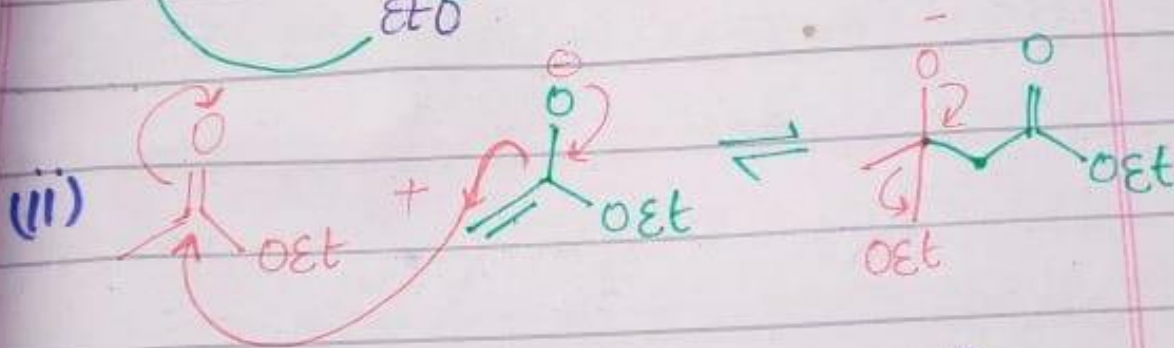 EtO
(ii) O OEt + ⊖ O OEt ⇌ - O OEt O OEt